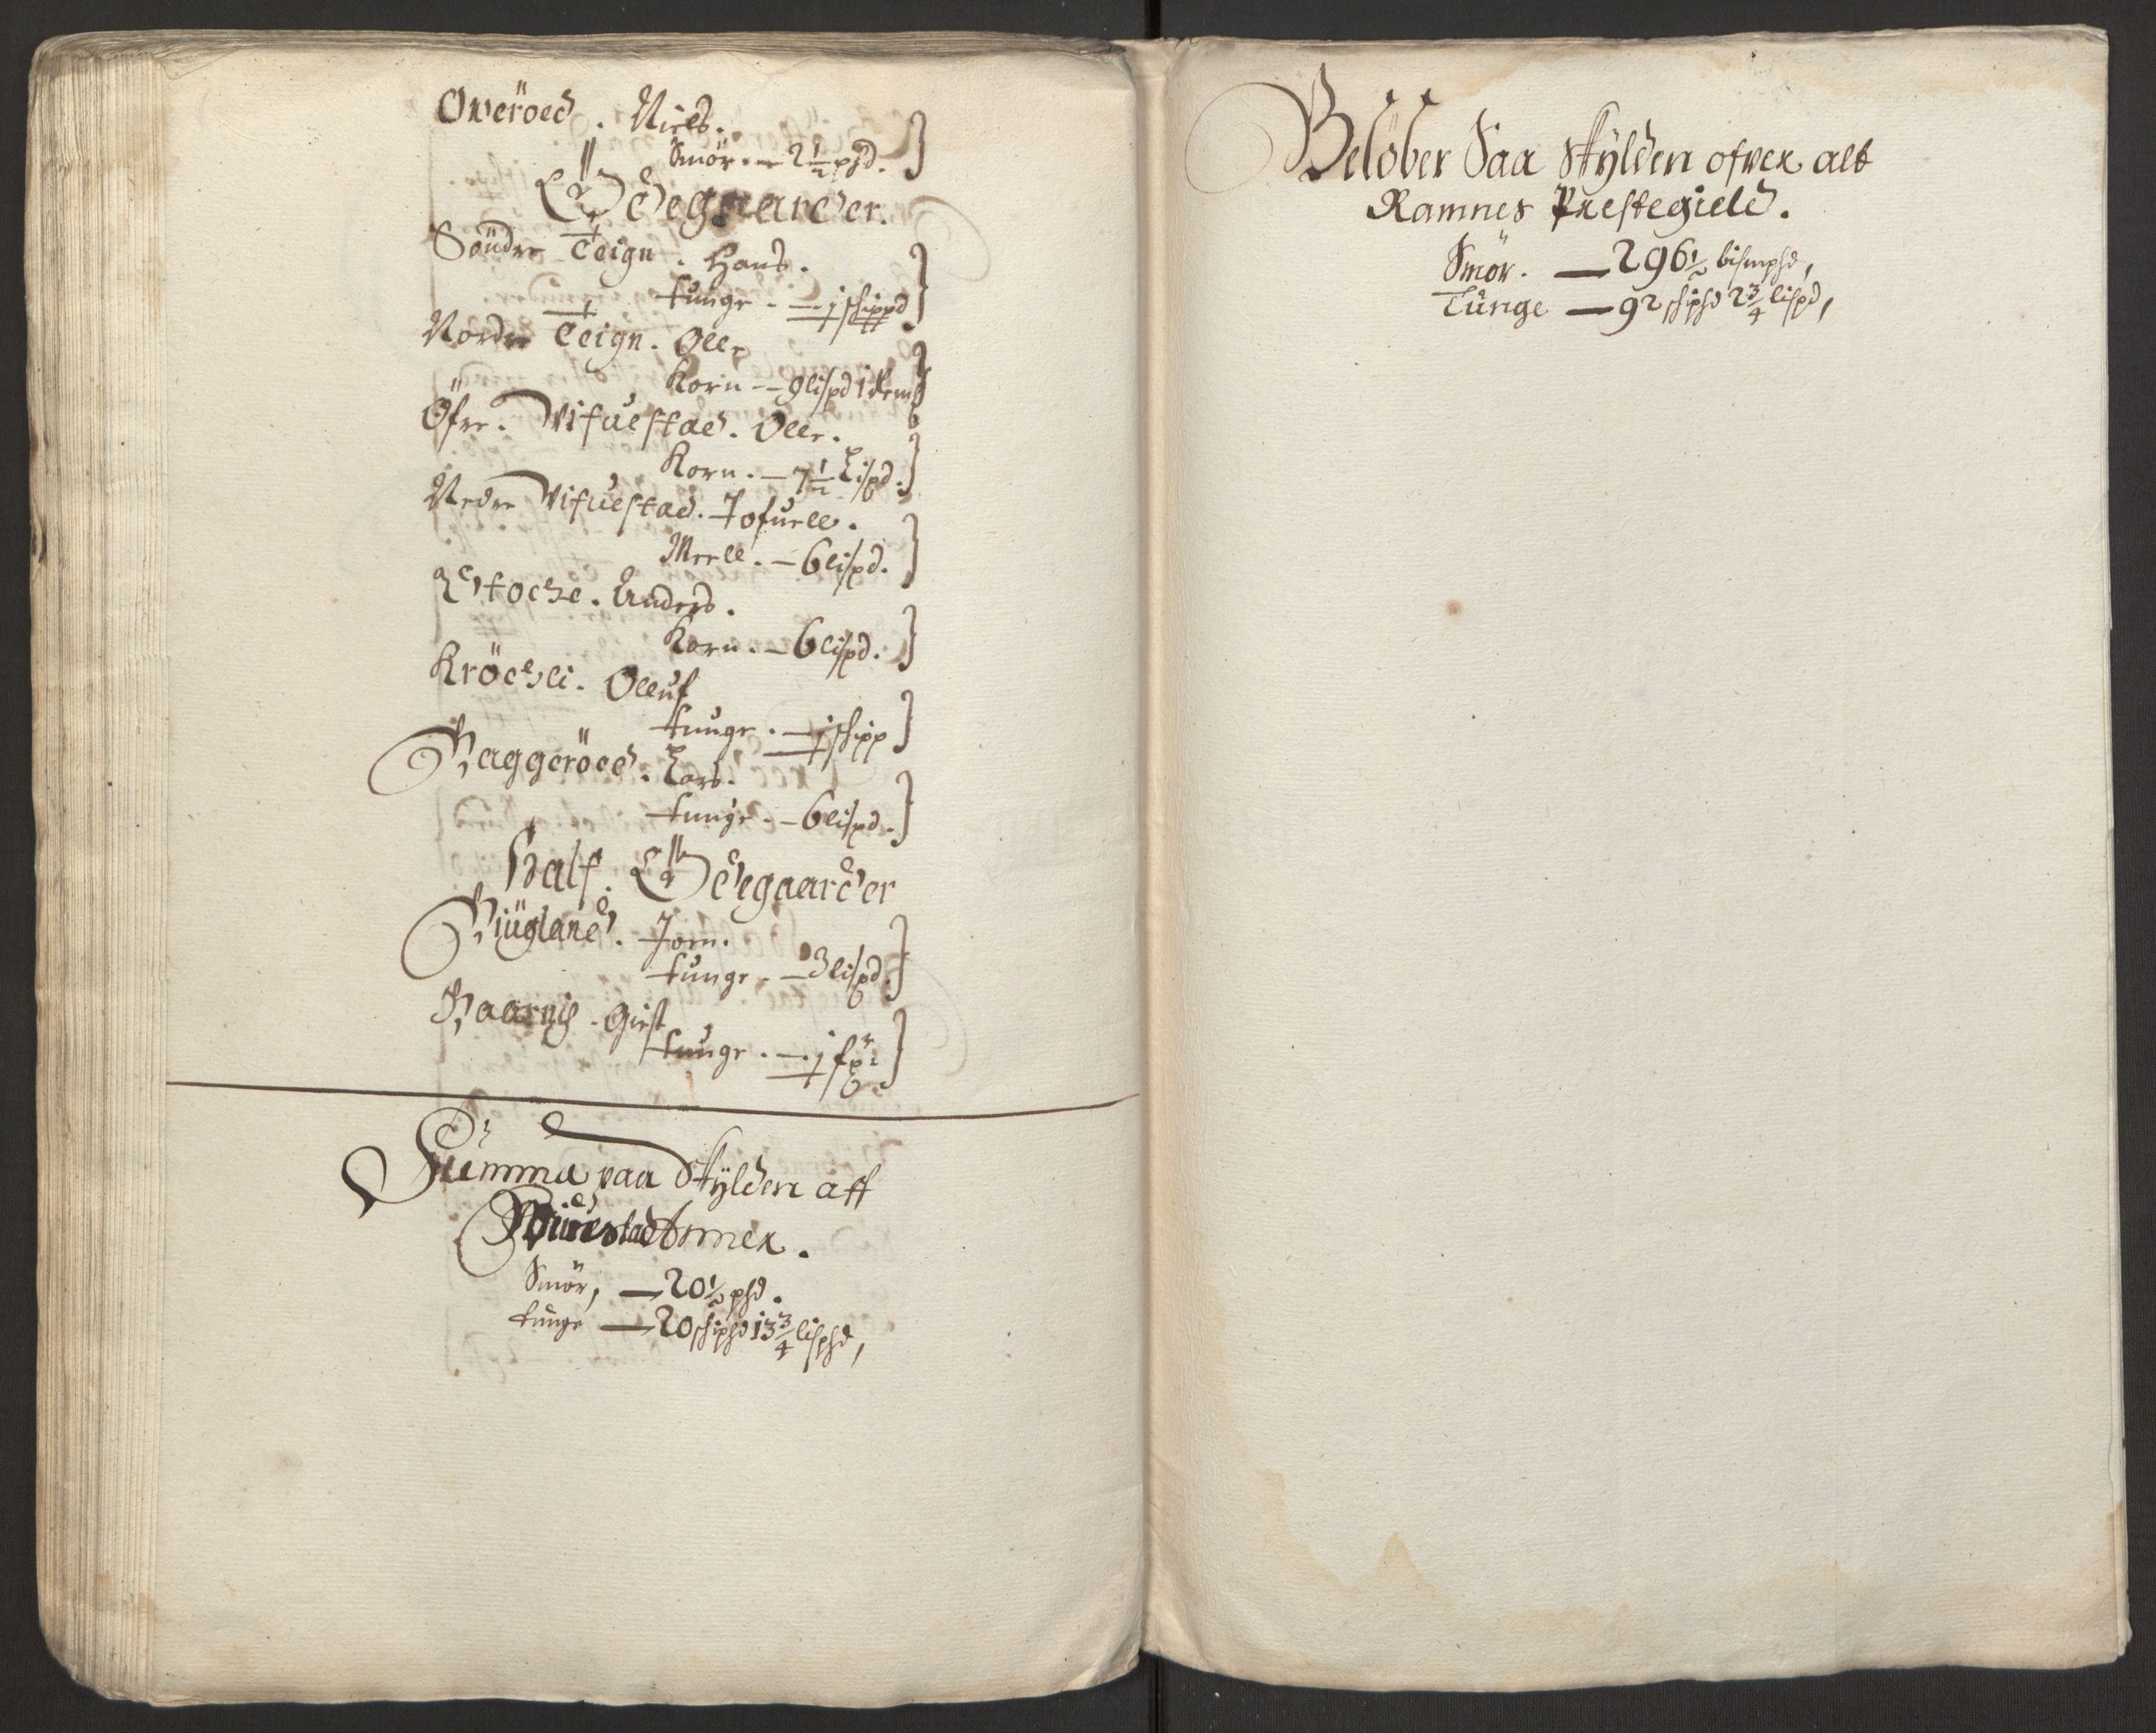 Overöed. Niels.
Smör. — 2½ pd.
Ödegaarder.
Söndre Teign. Hans.
tunge. — j schippd
Nordre Teign. Olle
Korn — 9 lispd 1 Rem̄
Öfre. Vifuestad. Olle.
Korn. — 7½ Lispd.
Nedre Vifuestad. Jofuell.
Meell. — 6 lispd.
Stoche. Anders.
Korn. — 6 lispd.
Kröchli. Olluf
tunge. — j schipp
Haggeröed. Lars.
tunge. — 6 lispd.
Half. Ödegaarder
Hiügland. Jorn.
tunge. — 3 lispd.
Haarnis. Giest
tunge. — j
Summa paa Skÿlden aff
Vifuestad Annex.
Smör, — 20½ pd.
tunge — 20 schipd 13¾ lispd,
Belöber Saa Skÿlden ofver alt
Ramnes Prestegield.
Smör. — 296½ bismpd,
Tunge — 92 schipd 2¾ lispd,